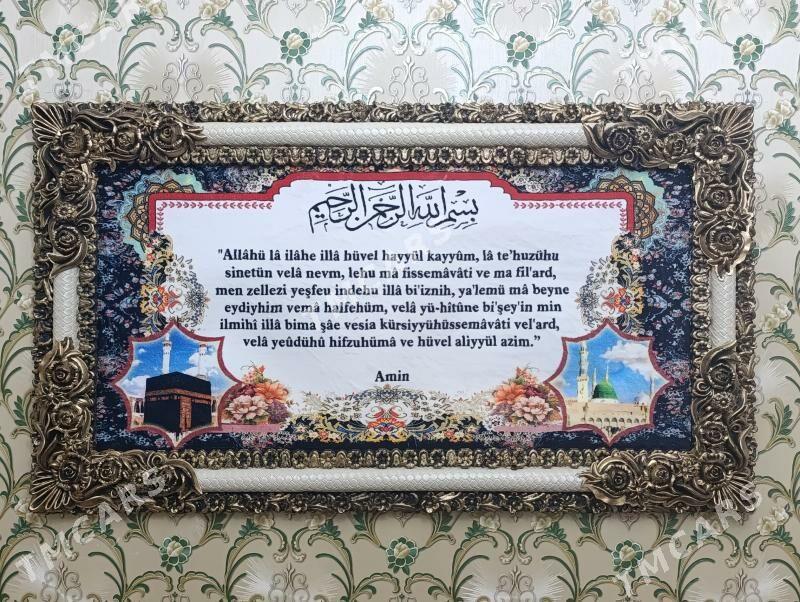 بسم الله الرحمن الرحيم
"Allâhü lâ ilâhe illâ hüvel hayyül kayyûm, lâ te'huzühu
sinetün velâ nevm, lehu ma fissemâvâti ve ma fil'ard,
men zellezi yeşfeu indehu illâ bi'iznih, ya'lemü mâ beyne
eydiyhim vemâ halfehüm, velâ yü-hîtûne bi'şey'in min
ilmihî illâ bima şâe vesia kürsiyyühüssemâvâti vel'ard,
velâ yeûdühû hifzuhümâ ve hüvel aliyyül azim."
Amin
TMCARS
TMCARS
TMCARS
TMCARS
TMCARS